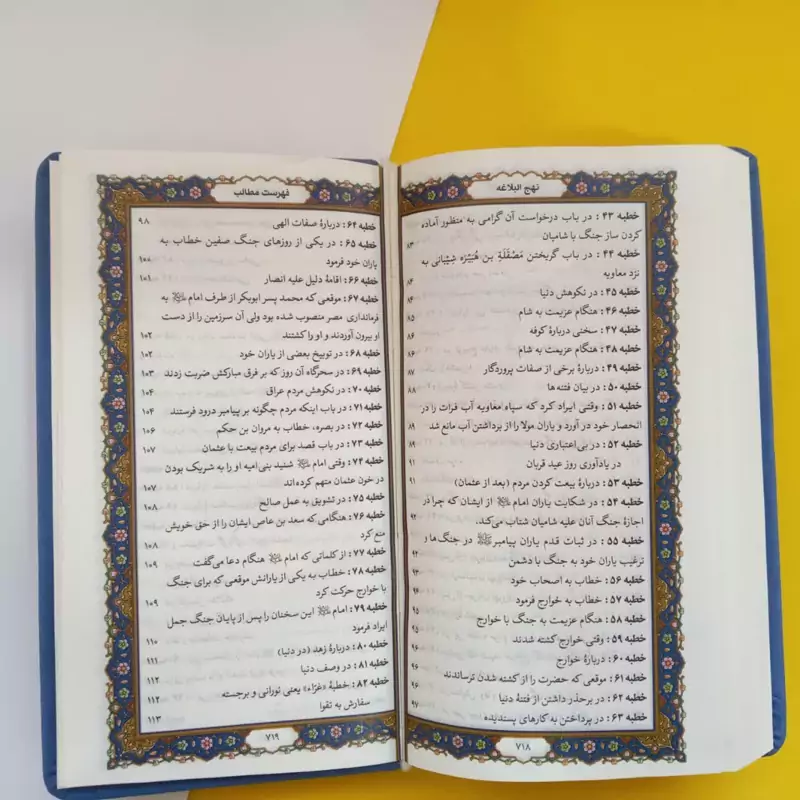 نهج البلاغه
خطبه ۴۳ : در باب درخواست آن گرامی به منظور آماده
کردن ساز جنگ با شامیان ۸۳
خطبه ۴۴ : در باب گریختن مَصْقَلَةِ بن هُبَیْرَه شِیْبانی به
نزد معاویه ۸۴
خطبه ۴۵ : در نکوهش دنیا ۸۴
خطبه ۴۶ : هنگام عزیمت به شام ۸۵
خطبه ۴۷ : سخنی درباره کوفه ۸۶
خطبه ۴۸ : هنگام عزیمت به شام ۸۶
خطبه ۴۹ : درباره برخی از صفات پروردگار ۸۷
خطبه ۵۰ : در بیان فتنه ها ۸۸
خطبه ۵۱ : وقتی ایراد کرد که سپاه معاویه آب فرات را در
انحصار خود در آورد و یاران مولا را از برداشتن آب مانع شد ۸۸
خطبه ۵۲ : در بی‌اعتباری دنیا ۸۹
در یادآوری روز عید قربان ۹۱
خطبه ۵۳ : درباره بیعت کردن مردم (بعد از عثمان) ۹۱
خطبه ۵۴ : در شکایت یاران امام ﷺ از ایشان که چرا در
اجازهٔ جنگ آنان علیه شامیان شتاب می‌کند. ۹۲
خطبه ۵۵ : در ثبات قدم یاران پیامبر ﷺ در جنگ‌ها و
ترغیب یاران خود به جنگ با دشمن ۹۲
خطبه ۵۶ : خطاب به اصحاب خود
خطبه ۵۷ : خطاب به خوارج فرمود
خطبه ۵۸ : هنگام عزیمت به جنگ با خوارج
خطبه ۵۹ : وقتی خوارج کشته شدند
خطبه ۶۰ : دربارهٔ خوارج
خطبه ۶۱ : موقعی که حضرت را از کشته شدن ترساندند ۹۶
خطبه ۶۲ : در برحذر داشتن از فتنهٔ دنیا ۹۶
خطبه ۶۳ : در پرداختن به کارهای پسندیده ۹۷
۷۱۸
فهرست مطالب
خطبه ۶۴ : دربارهٔ صفات الهی ۹۸
خطبه ۶۵ : در یکی از روزهای جنگ صفین خطاب به
یاران خود فرمود ۱۰۰
خطبه ۶۶ : اقامهٔ دلیل علیه انصار ۱۰۱
خطبه ۶۷ : موقعی که محمد پسر ابوبکر از طرف امام ﷺ به
فرمانداری مصر منصوب شده بود ولی آن سرزمین را از دست
او بیرون آوردند و او را کشتند ۱۰۲
خطبه ۶۸ : در توبیخ بعضی از یاران خود ۱۰۲
خطبه ۶۹ : در سحرگاه آن روز که بر فرق مبارکش ضربت زدند ۱۰۳
خطبه ۷۰ : در نکوهش مردم عراق ۱۰۴
خطبه ۷۱ : در باب اینکه مردم چگونه بر پیامبر درود فرستند ۱۰۴
خطبه ۷۲ : در بصره، خطاب به مروان بن حکم ۱۰۶
خطبه ۷۳ : در باب قصد برای مردم بیعت با عثمان ۱۰۷
خطبه ۷۴ : وقتی امام ﷺ شنید بنی‌امیه او را به شریک بودن
در خون عثمان متهم کرده‌اند ۱۰۷
خطبه ۷۵ : در تشویق به عمل صالح ۱۰۸
خطبه ۷۶ : هنگامی که سعد بن عاص ایشان را از حق خویش
منع کرد ۱۰۸
خطبه ۷۷ : از کلماتی که امام ﷺ هنگام دعا می‌گفت ۱۰۹
خطبه ۷۸ : خطاب به یکی از یارانش موقعی که برای جنگ
با خوارج حرکت کرد ۱۰۹
خطبه ۷۹ : امام ﷺ این سخنان را پس از پایان جنگ جمل
ایراد فرمود ۱۱۰
خطبه ۸۰ : دربارهٔ زهد (در دنیا) ۱۱۱
خطبه ۸۱ : در وصف دنیا ۱۱۲
خطبه ۸۲ : خطبهٔ «غرّاء» یعنی نورانی و برجسته ۱۱۲
سفارش به تقوا ۱۱۳
۷۱۹